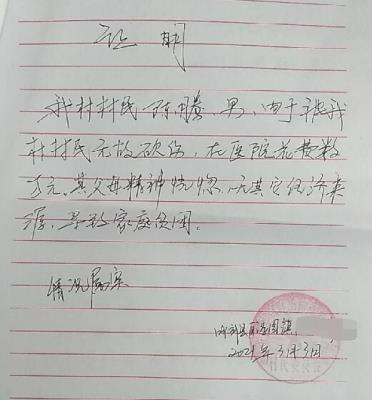 证明
我村村民陈腾，男，由于被我
村村民无故砍伤，在医院花费数
万元。其父母精神恍惚，无其它经济来
源，导致家庭贫困。
情况属实
县 镇
2021年3月3日